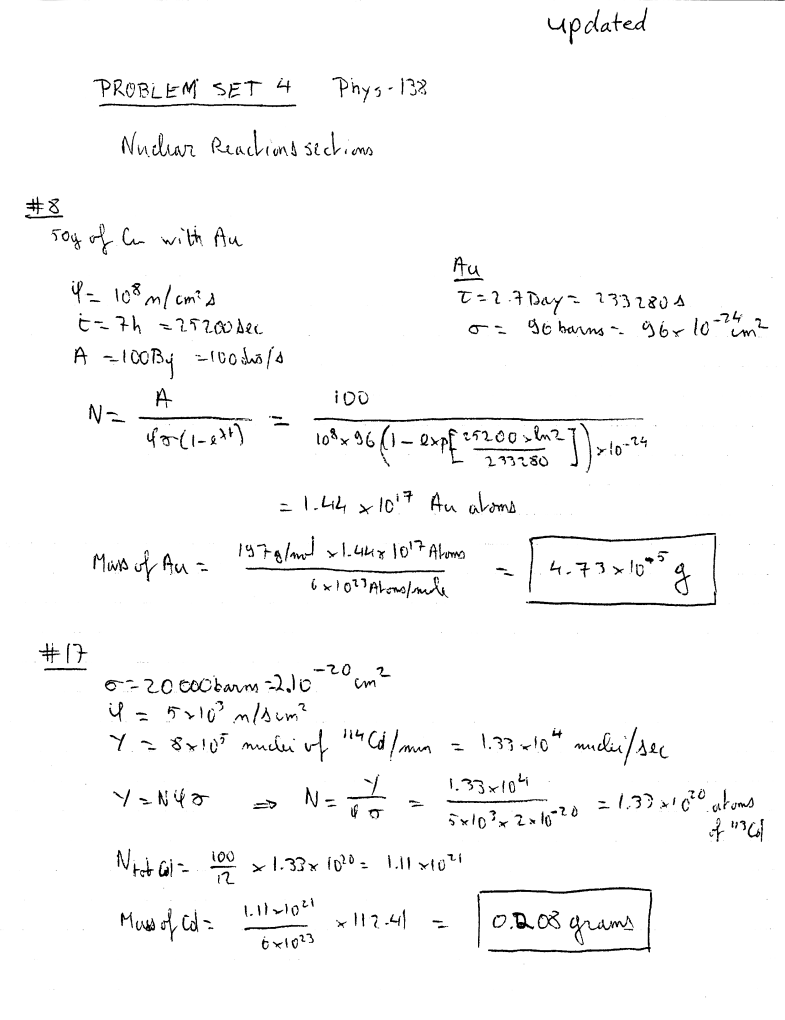 updated
PROBLEM SET 4 Phys-138
Nuclear Reactions sections
#8
50g of Cu with Au
φ = 10⁸ n/cm² s
t = 7h = 25200 sec
A = 100 Bq = 100 dis/s
Au
τ = 2.7 Day = 233280 s
σ = 96 barns = 96 × 10⁻²⁴ cm²
N = A / φσ(1-e^λt) = 100 / 10⁸ × 96 (1 - exp[25200 × ln2 / 233280]) × 10⁻²⁴
= 1.44 × 10¹⁷ Au atoms
Mass of Au = 197 g/mol × 1.44 × 10¹⁷ Atoms / 6 × 10²³ Atoms/mole = 4.73 × 10⁻⁵ g
#17
σ = 20 000 barns = 2.10⁻²⁰ cm²
φ = 5 × 10³ n/s cm²
Y = 8 × 10⁵ nuclei of ¹¹⁴Cd/min = 1.33 × 10⁴ nuclei/sec
Y = Nφσ ⇒ N = Y / φσ = 1.33 × 10⁴ / 5 × 10³ × 2 × 10⁻²⁰ = 1.33 × 10²⁰ atoms of ¹¹³Cd
N tot Cd = 100 / 12 × 1.33 × 10²⁰ = 1.11 × 10²¹
Mass of Cd = 1.11 × 10²¹ / 6 × 10²³ × 112.41 = 0.208 grams